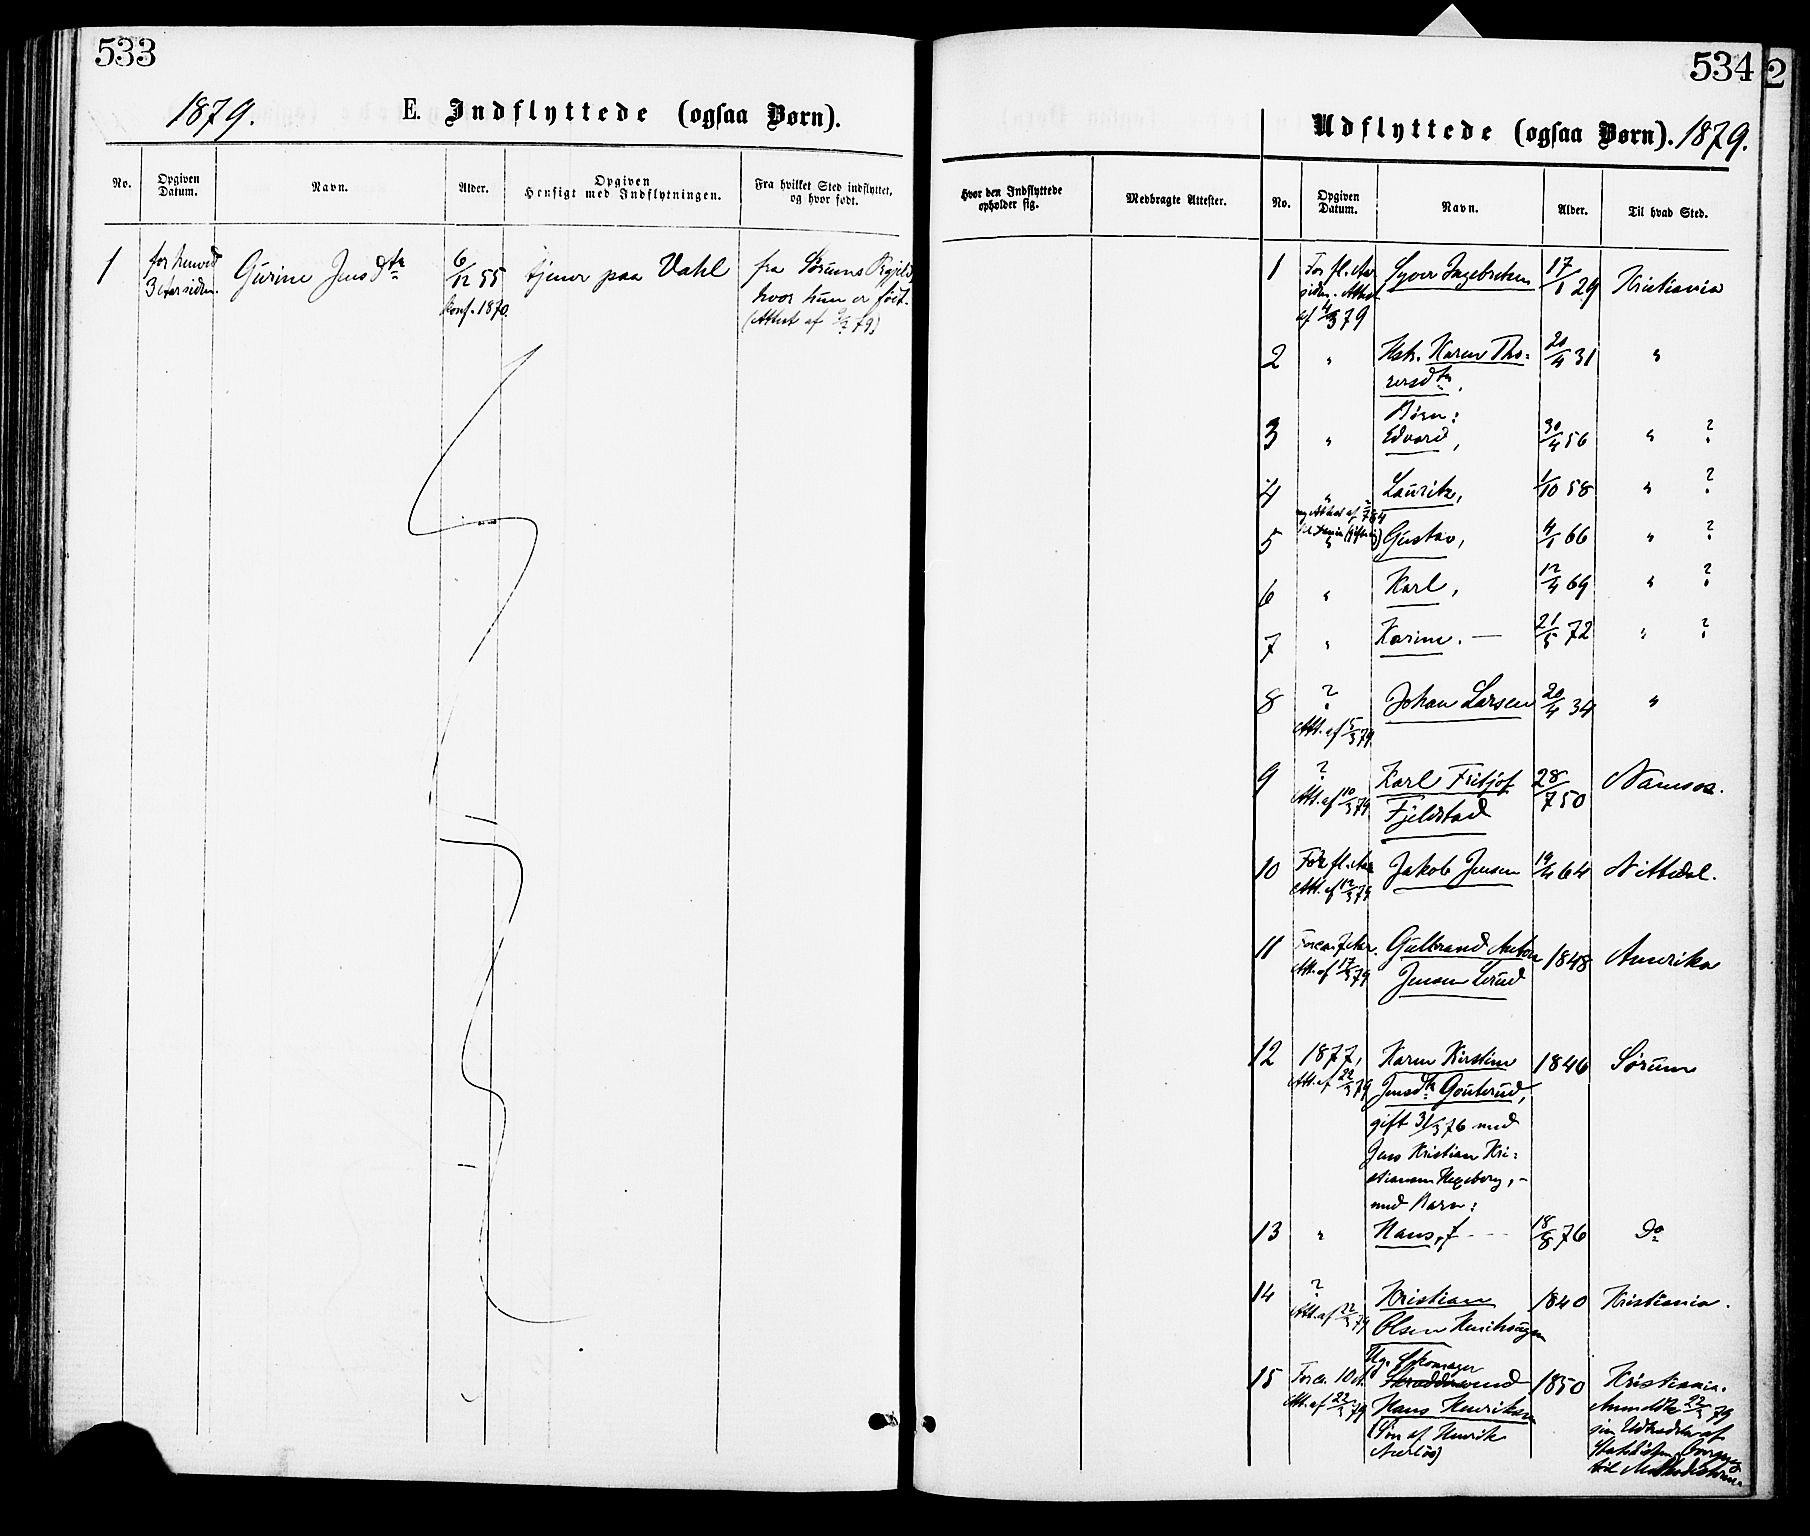 533
1879.
E. Indflyttede (ogsaa Børn).
No.
Opgiven Datum.
Navn.
Alder.
Opgiven Hensigt med Indflytningen.
Fra hvilket Sted indflyttet, og hvor født.
1
for henved
3 Aar siden.
Gurine Jensdtr
6/12 55
Konf. 1870.
tjener paa Vahl
fra Sørums Pgjeld,
hvor hun er født.
534
2
Udflyttede (ogsaa Børn). 1879.
Hvor den Indflyttede opholder sig.
Medbragte Attester.
No.
Opgiven Datum.
Navn.
Alder.
Til hvad Sted.
1 For fl. Aar Syver Ingebretsen 17/1 29 Kristiania
siden. Attest
af 4/3 79
2 " Hstr. Karen Tho= 20/4 31 "
rersdtr,
Børn:
3 " Edvard, 30/4 56 " ?
4 " Lauritz, 1/10 58 " ?
5 " Gustav, 4/1 66 " ?
6 " Karl, 12/4 69 " ?
7 " Karine. — 21/5 72 " ?
8 ? Johan Larsen 20/4 34 "
Att. af 5/3 79
9 ? Karl Fritjof 28/7 50 Namsos.
Att. af 10/3 79 Fjeldstad
10 For fl. Aar Jakob Jensen 19/4 64 Nittedal.
Att. af 12/3 79
11 For ca. 7 Aar. Gulbrand Anton 1848 Amerika
Att. af 17/3 79 Jensen Lerud
12 1877, Karen Kirstine 1846 Sørum
Att. af 22/3 79 Jensdtr
gift 31/3 76 med
Jens Kristian Kri=
stiansen Hexeberg, -
med Barn:
13 " Hans, f - - - 18/8 76 Do
14 ? Kristian 1840 Kristiania.
Att. af 22/3 79 Olsen
Ug. Skomager
15 For ca. 10 A. svend 1850 Kristiania.
Att. af 22/3 79 Hans Henriksen Anmeldte 22/3 79
(Søn af Henrik sin Udtrædelse af